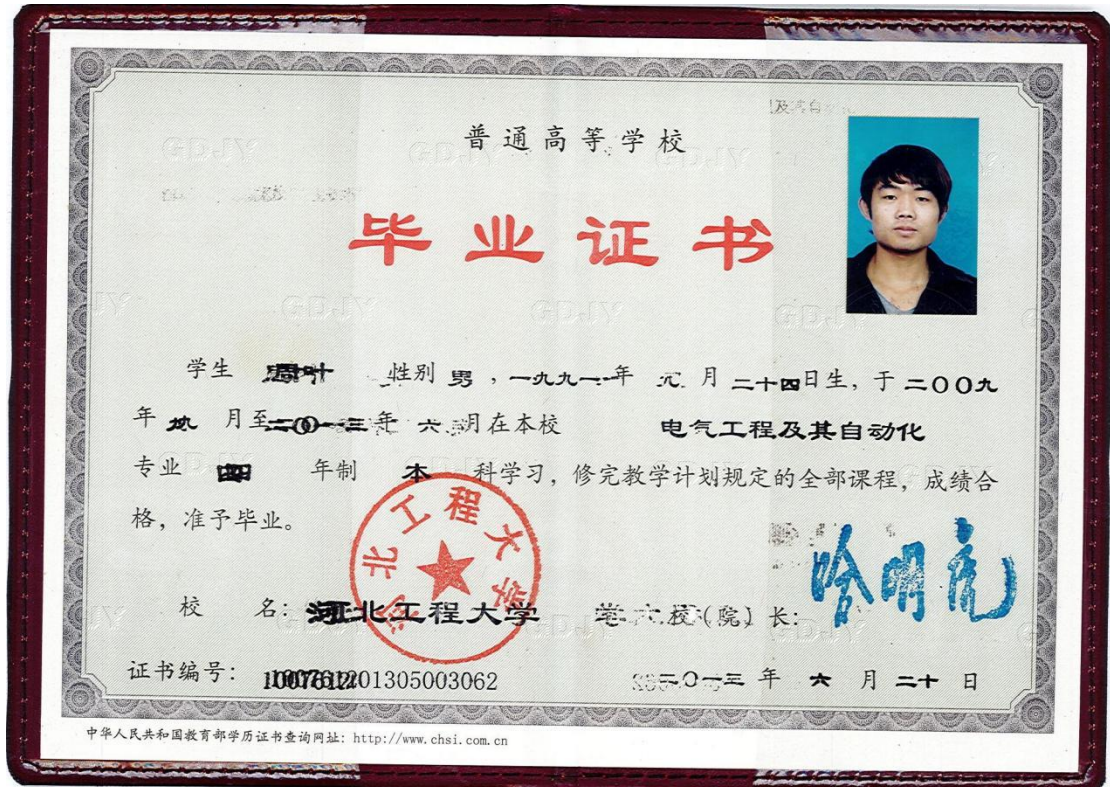 普通高等学校
毕业证书
学生 周叶 性别 男，一九九一年 元 月 二十四日生，于 二〇〇九
年 九 月至二〇一三年 六 月在本校 电气工程及其自动化
专业 四 年制 本 科学习，修完教学计划规定的全部课程，成绩合
格，准予毕业。
河北工程大学
哈明虎
校 名：河北工程大学 校(院)长：
证书编号： 201305003062 二〇一三 年 六 月 二十 日
中华人民共和国教育部学历证书查询网址：http://www.chsi.com.cn
GDJY